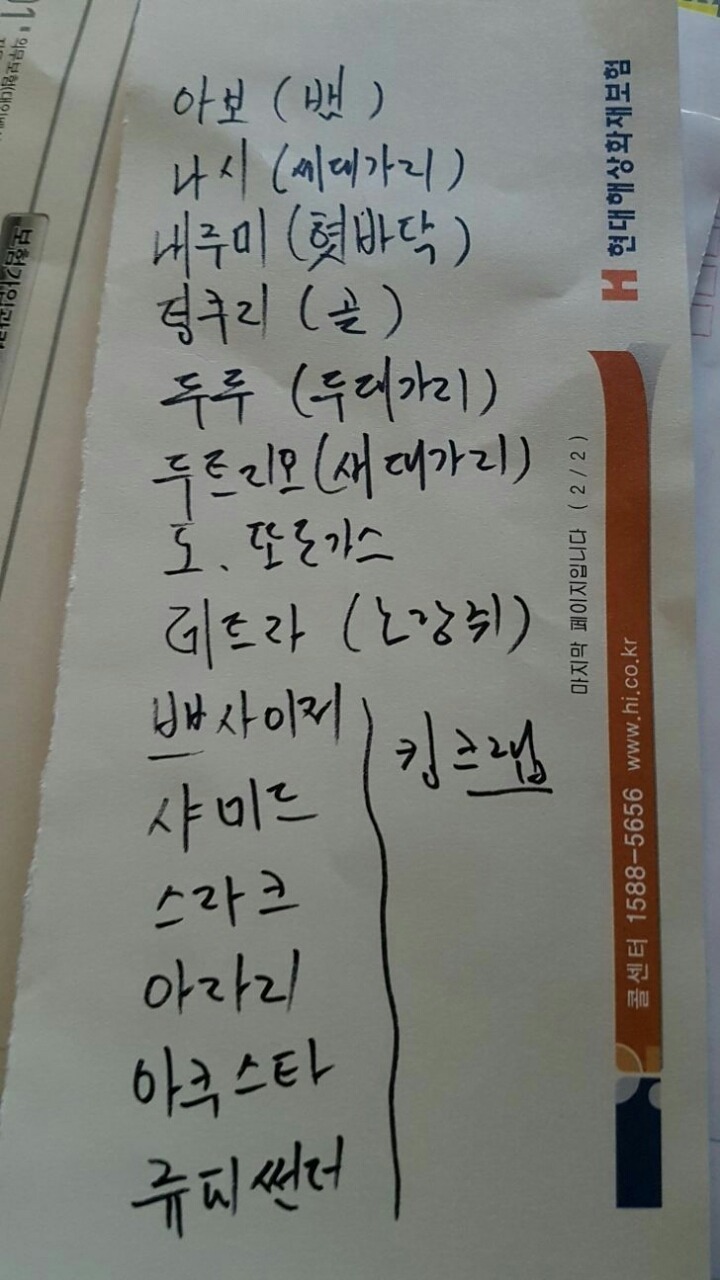 아보 (뱀)
나시 (세대가리)
내루미 (혓바닥)
덩쿠리 (골)
두루 (두대가리)
두트리오 (새대가리)
도. 또론가스
레트라 (노랑쥐)
뿌사이저
킹크랩
샤미드
스라크
아라리
아쿠스타
쥬피썬더
현대해상화재보험
마지막 페이지입니다 (2/2)
콜센터 1588-5656 www.hi.co.kr